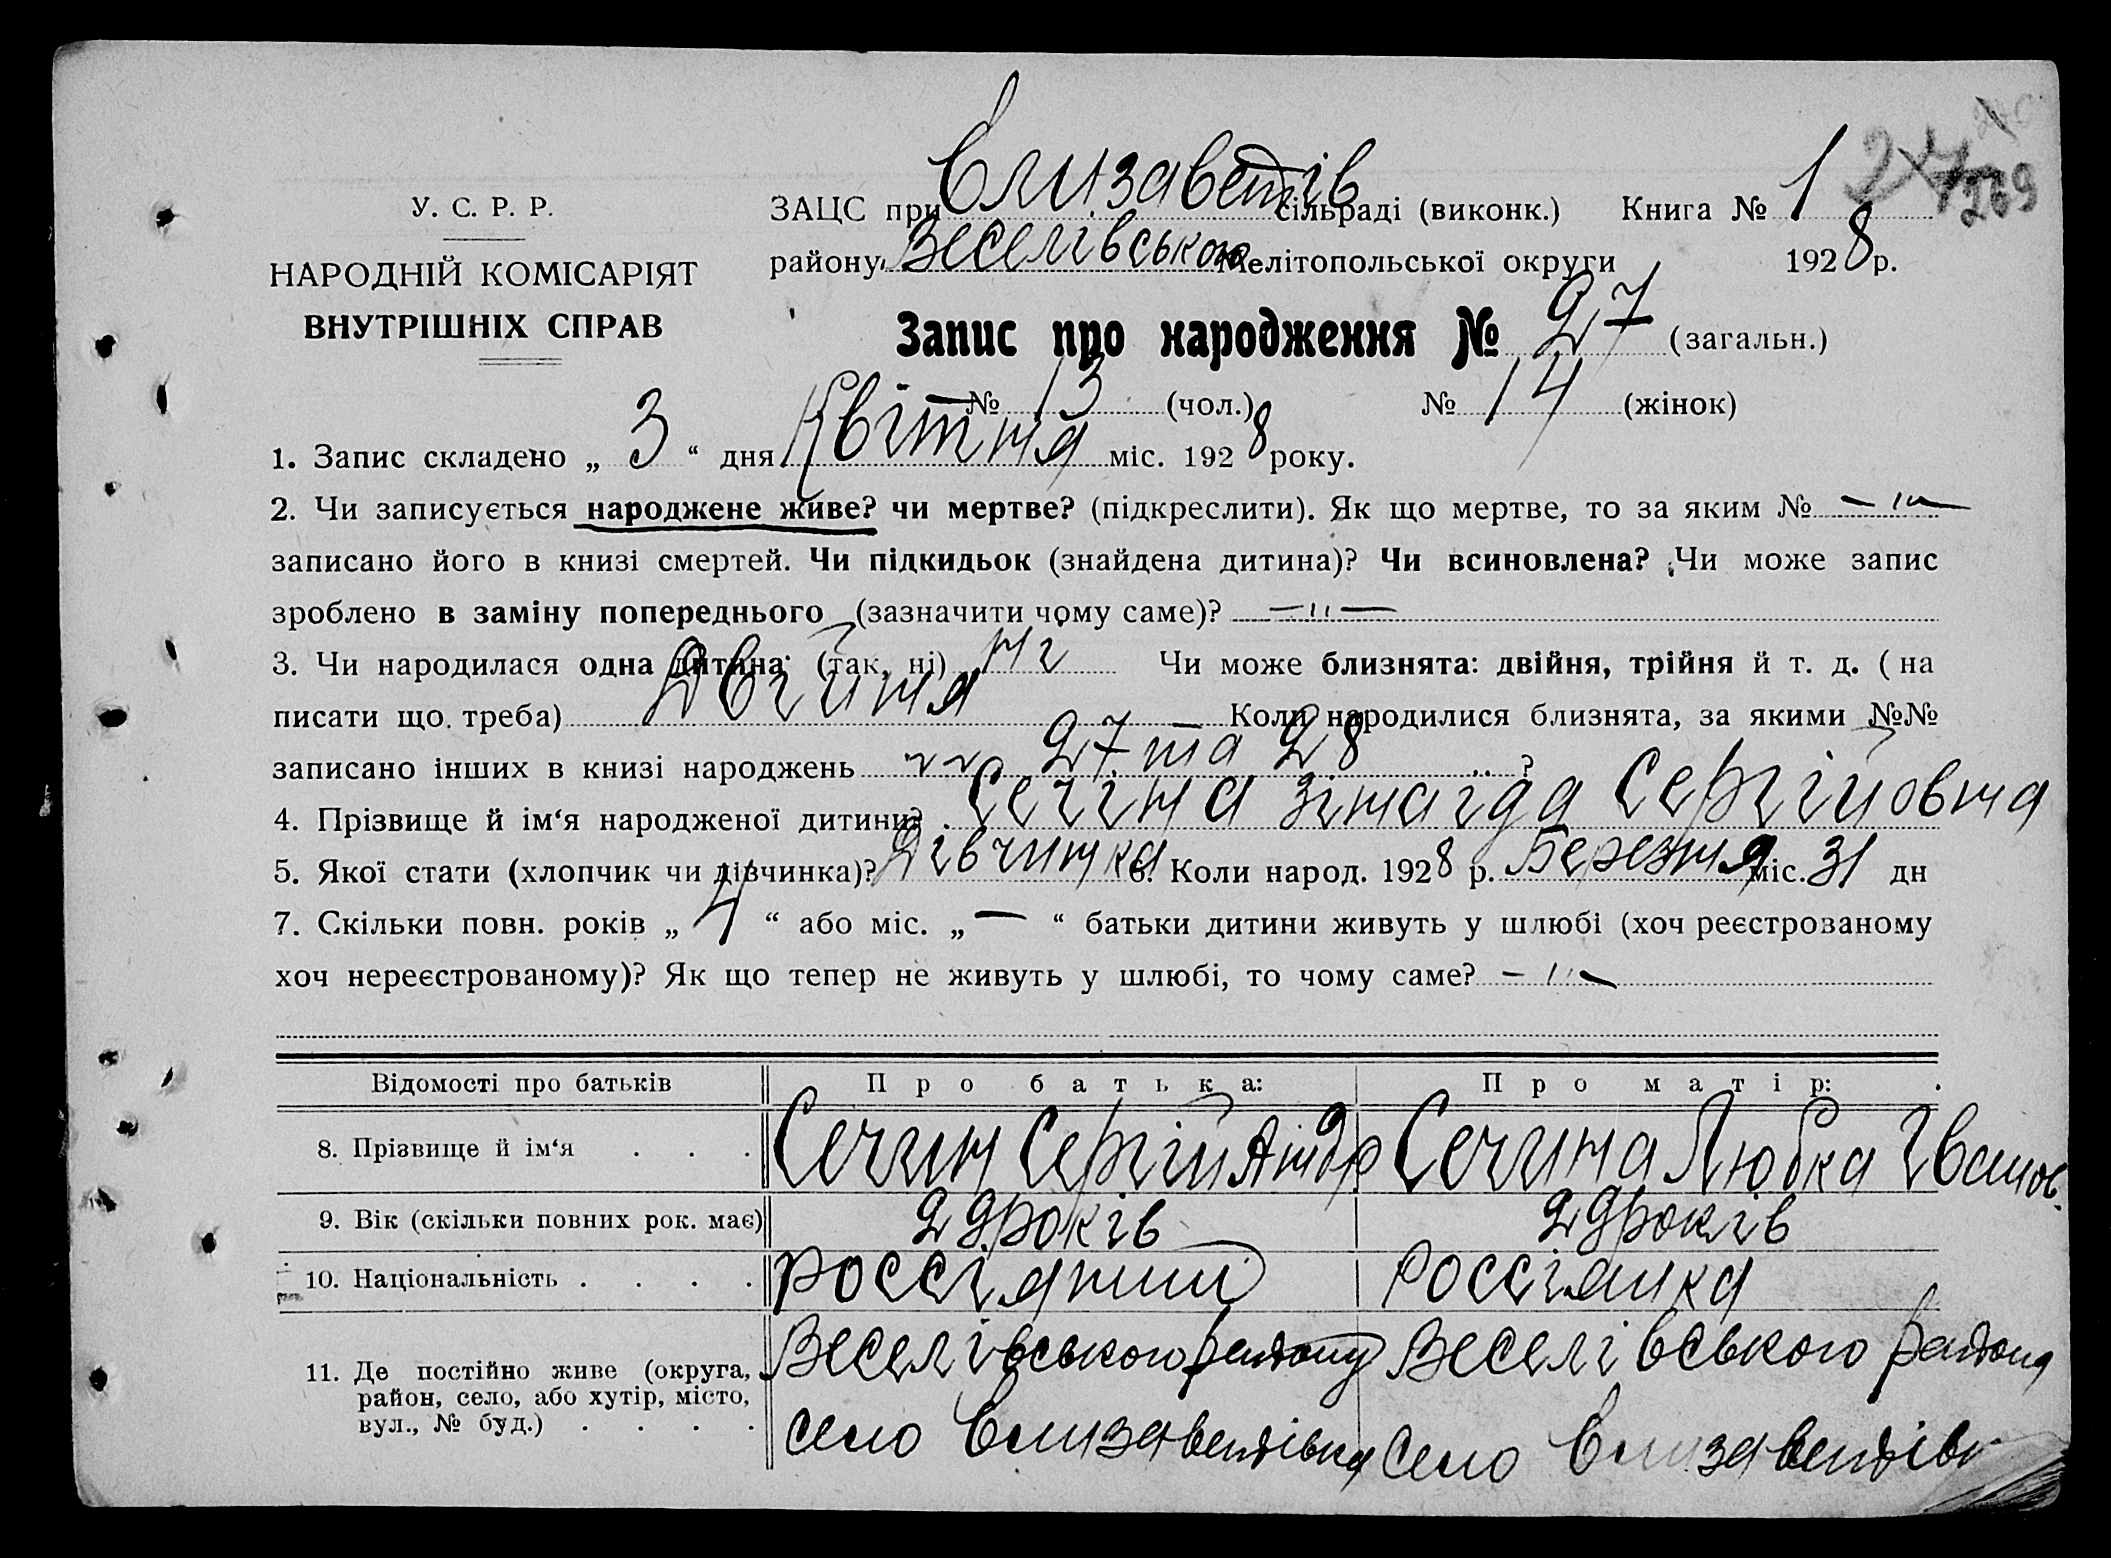 У. С. Р. Р.
НАРОДНІЙ КОМІСАРІЯТ
ВНУТРІШНІХ СПРАВ
ЗАЦС при Єлизаветів сільраді (виконк.) Книга № 1
269
району Веселівською Мелітопольської округи 1928 р.
Запис про народження № 27 (загальн.)
№ 13 (чол.) № 14 (жінок)
1. Запис складено „ 3 “ дня Квітня міс. 1928 року.
2. Чи записується народжене живе? чи мертве? (підкреслити). Як що мертве, то за яким № — „ —
записано його в книзі смертей. Чи підкидьок (знайдена дитина)? Чи всиновлена? Чи може запис
зроблено в заміну попереднього (зазначити чому саме)? — „ —
3. Чи народилася одна дитина (так, ні) ні Чи може близнята: двійня, трійня й т. д. (на
писати що треба) Двійня Коли народилися близнята, за якими №№
записано інших в книзі народжень 27 та 28 ?
4. Прізвище й ім‘я народженої дитини? Сечіна Зінаіда Сергійовна
5. Якої стати (хлопчик чи дівчинка)? Дівчинка 6. Коли народ. 1928 р. Березня міс. 31 дн
7. Скільки повн. років „ 4 “ або міс. „ — “ батьки дитини живуть у шлюбі (хоч реєстрованому
хоч нереєстрованому)? Як що тепер не живуть у шлюбі, то чому саме? — „ —
Відомості про батьків Про батька: Про матір:
8. Прізвище й ім‘я . . . Сечин Сергій Андр Сечина Любка Іванов.
9. Вік (скільки повних рок. має) 29 років 29 років
10. Національність . . . . россіянин россіянка
11. Де постійно живе (округа, район, село, або хутір, місто, вул., № буд.) . . . . Веселівського району село Єлизаветівка Веселівського району село Єлизаветівк